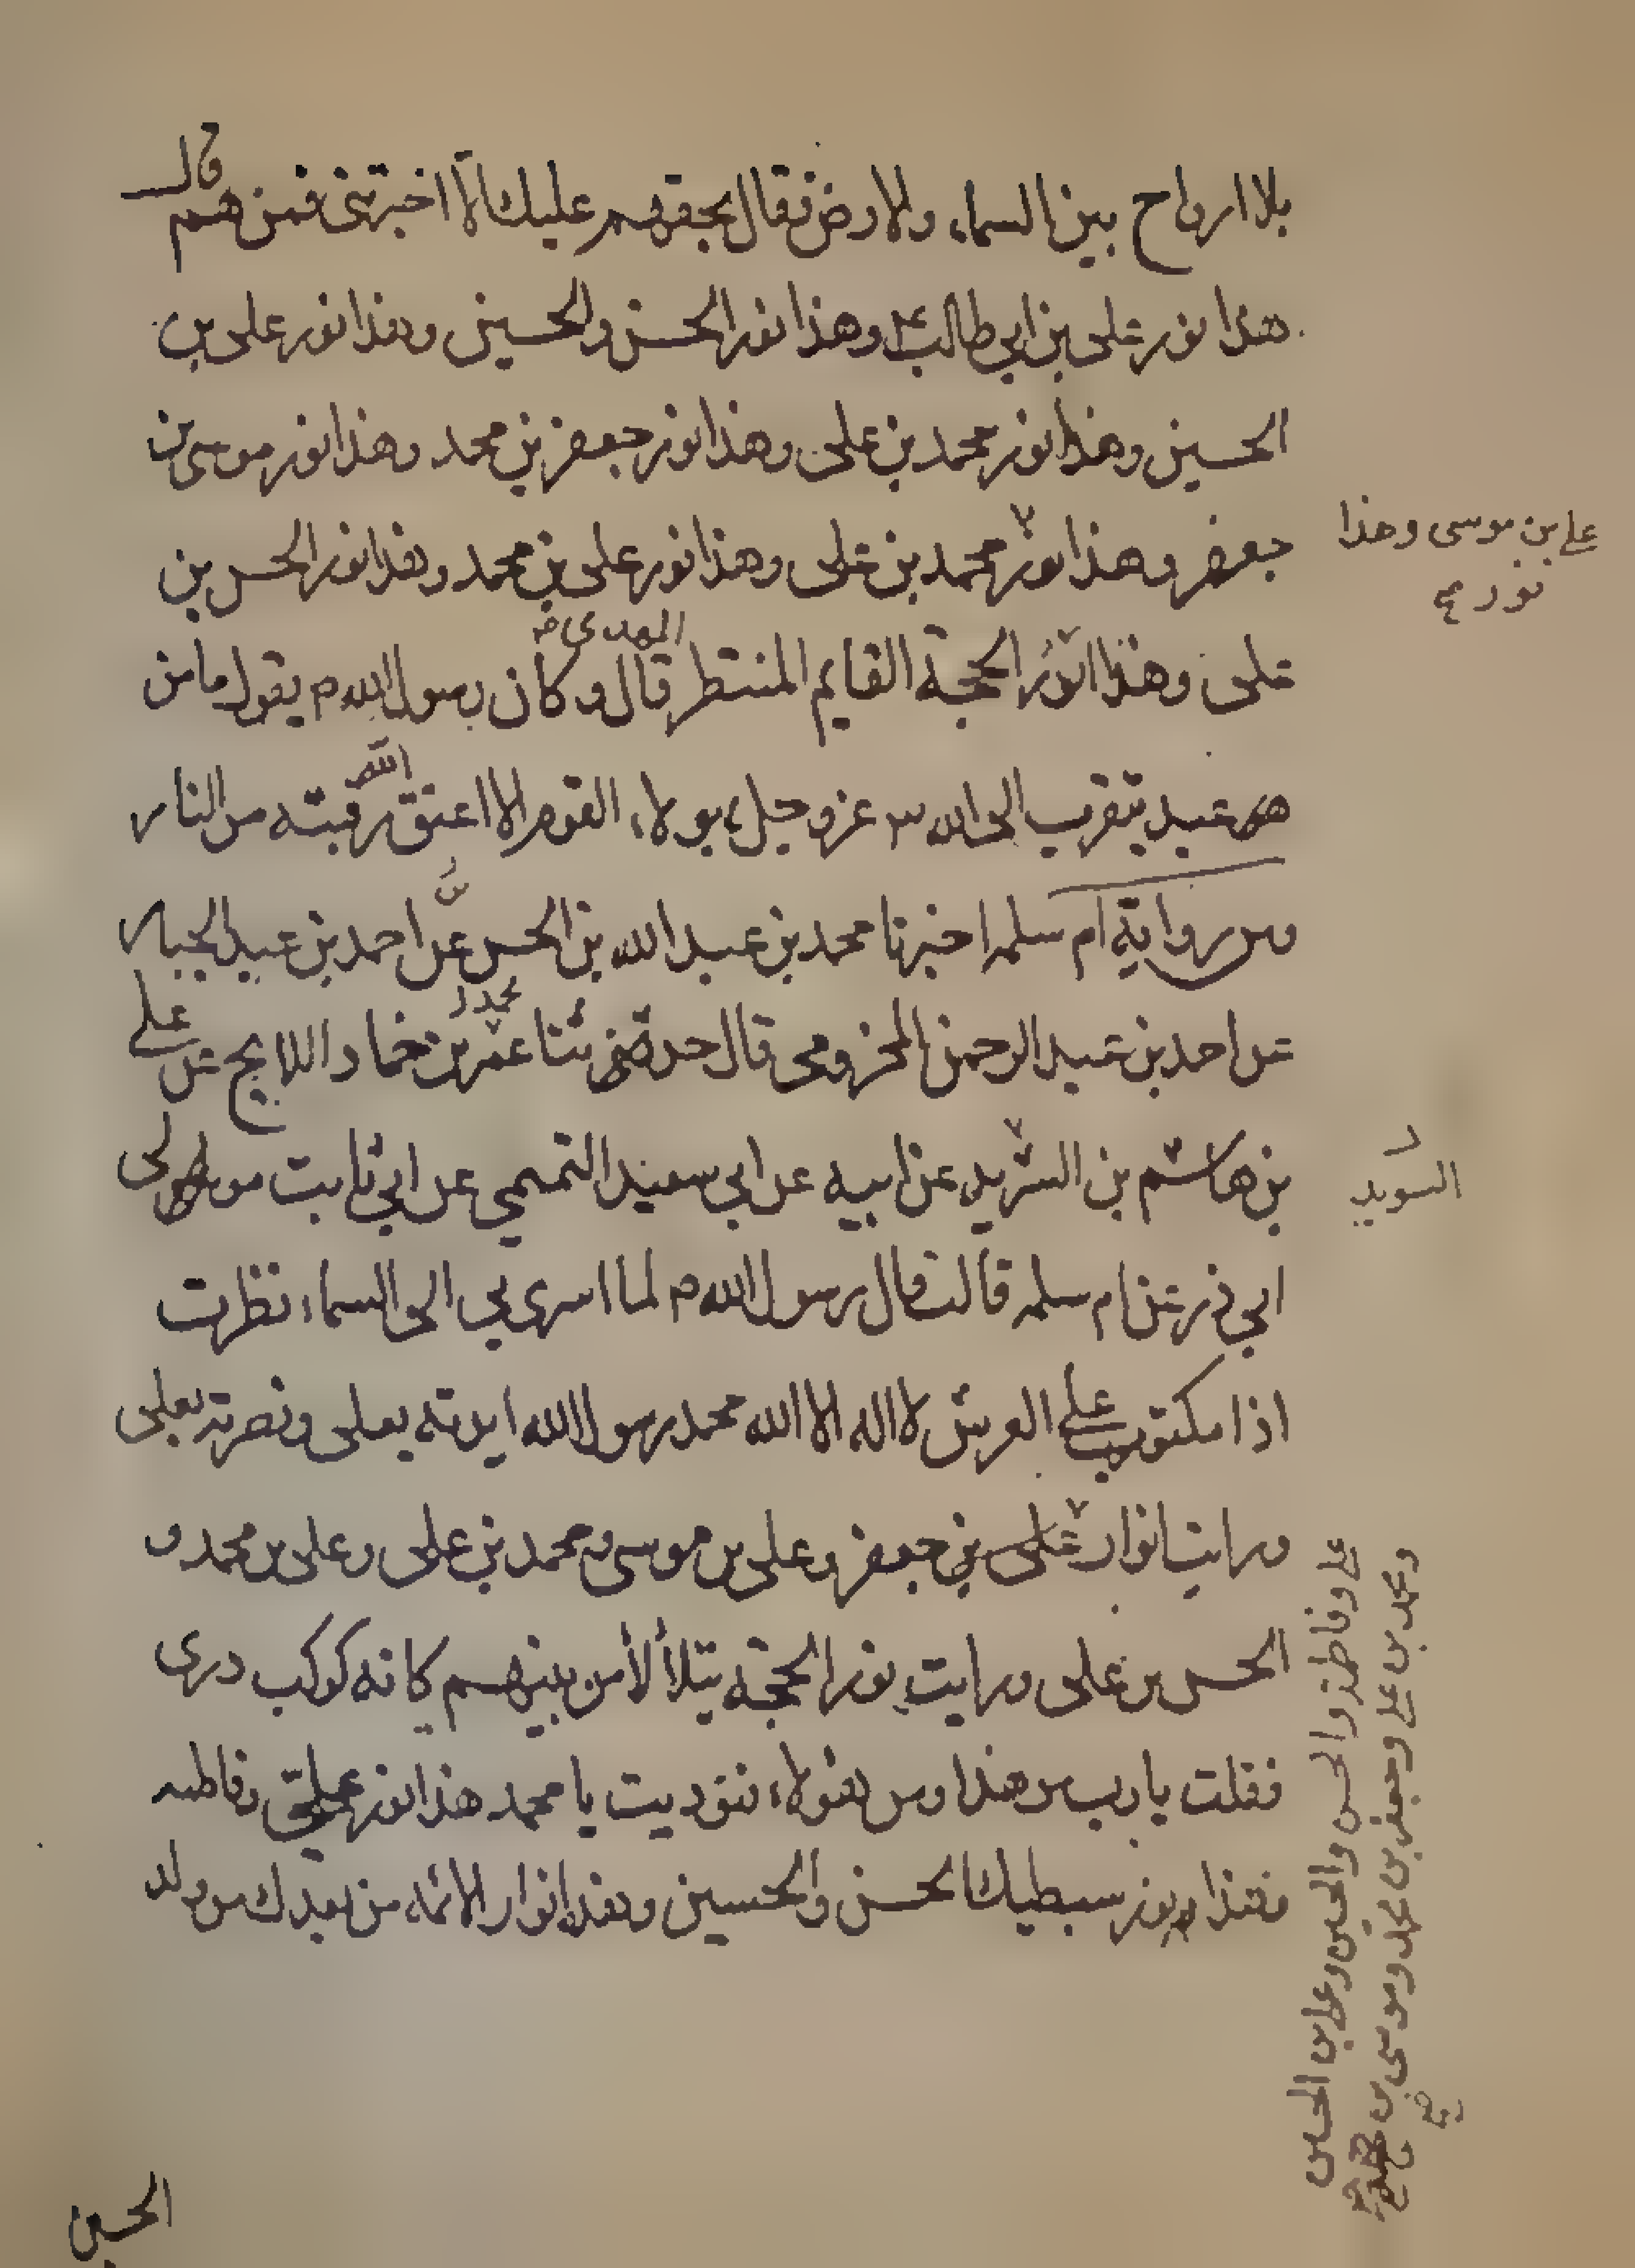 بلا ارواح بين السماء والارض فقال بحقهم عليك الّا اخبرتنى فمن هم قال
هذا نور على بن ابي طالب وهذا نور الحسن والحسين وهذا نور على بن
الحسين وهذا نور محمد بن على وهذا نور جعفر بن محمد وهذا نور موسى بن
جعفر وهذا نور محمد بن على وهذا نور على بن محمد وهذا نور الحسن بن
على بن موسى وهذا
نور
على وهذا نور الحجة القايم المنتظر قال وكان رسول الله ص يقول ما من
المهدى
عبد يتقرب الى الله عز وجل بهولاء القوم الا اعتق رقبته من النار
الله
ومن رواية ام سلمه اخبرنا محمد بن عبد الله بن الحسن عن احمد بن عبد الجبار
عن احمد بن عبد الرحمن المخزومى قال ثنا عمر بن حماد الابح عن على
بن هاشم بن الشريد عن ابيه عن ابي سعيد التميمي عن ابي ثابت مولى
السويد
ابي ذر عن ام سلمه قالت قال رسول الله ص لما اسرى بي الى السماء نظرت
اذا مكتوب على العرش لا اله الا الله محمد رسول الله ايدته بعلى ونصرته بعلى
ورايت انوار على بن جعفر وعلى بن موسى ومحمد بن على وعلى بن محمد و
على وفاطمة والحسن والحسين وعلى بن الحسين
ومحمد بن على وجعفر بن محمد وموسى بن
الحسن بن على ورايت نور الحجة يتلألأ من بينهم كانه كوكب درى
فقلت يا رب من هذا ومن هولاء فنوديت يا محمد هذا نور على وفاطمه
وهذا نور سبطيك الحسن والحسين وهذا انوار الائمه من بعدك من ولد
الحسين